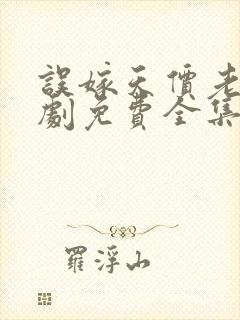 誤嫁天價老
劇免費全集
羅浮山